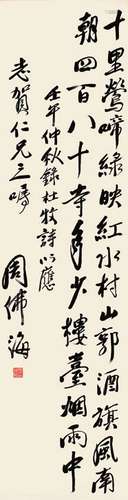 十里鶯啼綠映紅水村山郭酒旗風南
朝四百八十寺多少樓臺烟雨中
壬午仲秋錄杜牧詩以應
志賀仁兄之囑
周佛海